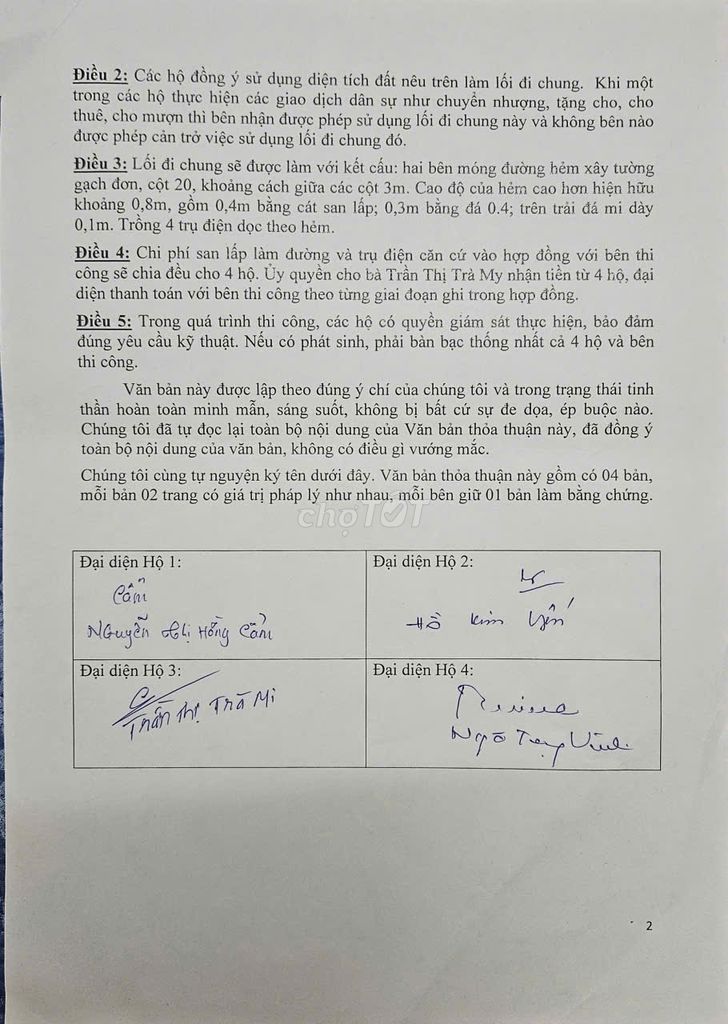 Điều 2: Các hộ đồng ý sử dụng diện tích đất nêu trên làm lối đi chung. Khi một
trong các hộ thực hiện các giao dịch dân sự như chuyển nhượng, tặng cho, cho
thuê, cho mượn thì bên nhận được phép sử dụng lối đi chung này và không bên nào
được phép cản trở việc sử dụng lối đi chung đó.
Điều 3: Lối đi chung sẽ được làm với kết cấu: hai bên móng đường hẻm xây tường
gạch đơn, cột 20, khoảng cách giữa các cột 3m. Cao độ của hẻm cao hơn hiện hữu
khoảng 0,8m, gồm 0,4m bằng cát san lấp; 0,3m bằng đá 0.4; trên trải đá mi dày
0,1m. Trồng 4 trụ điện dọc theo hẻm.
Điều 4: Chi phí san lấp làm đường và trụ điện căn cứ vào hợp đồng với bên thi
công sẽ chia đều cho 4 hộ. Ủy quyền cho bà Trần Thị Trà My nhận tiền từ 4 hộ, đại
diện thanh toán với bên thi công theo từng giai đoạn ghi trong hợp đồng.
Điều 5: Trong quá trình thi công, các hộ có quyền giám sát thực hiện, bảo đảm
đúng yêu cầu kỹ thuật. Nếu có phát sinh, phải bàn bạc thống nhất cả 4 hộ và bên
thi công.
Văn bản này được lập theo đúng ý chí của chúng tôi và trong trạng thái tinh
thần hoàn toàn minh mẫn, sáng suốt, không bị bất cứ sự đe dọa, ép buộc nào.
Chúng tôi đã tự đọc lại toàn bộ nội dung của Văn bản thỏa thuận này, đã đồng ý
toàn bộ nội dung của văn bản, không có điều gì vướng mắc.
Chúng tôi cùng tự nguyện ký tên dưới đây. Văn bản thỏa thuận này gồm có 04 bản,
mỗi bản 02 trang có giá trị pháp lý như nhau, mỗi bên giữ 01 bản làm bằng chứng.
chợTỐT
Đại diện Hộ 1:
Cẩm
Nguyễn Thị Hồng Cẩm
Đại diện Hộ 2:
Hồ Kim Yến
Đại diện Hộ 3:
Trần Thị Trà Mi
Đại diện Hộ 4:
Ngô
2